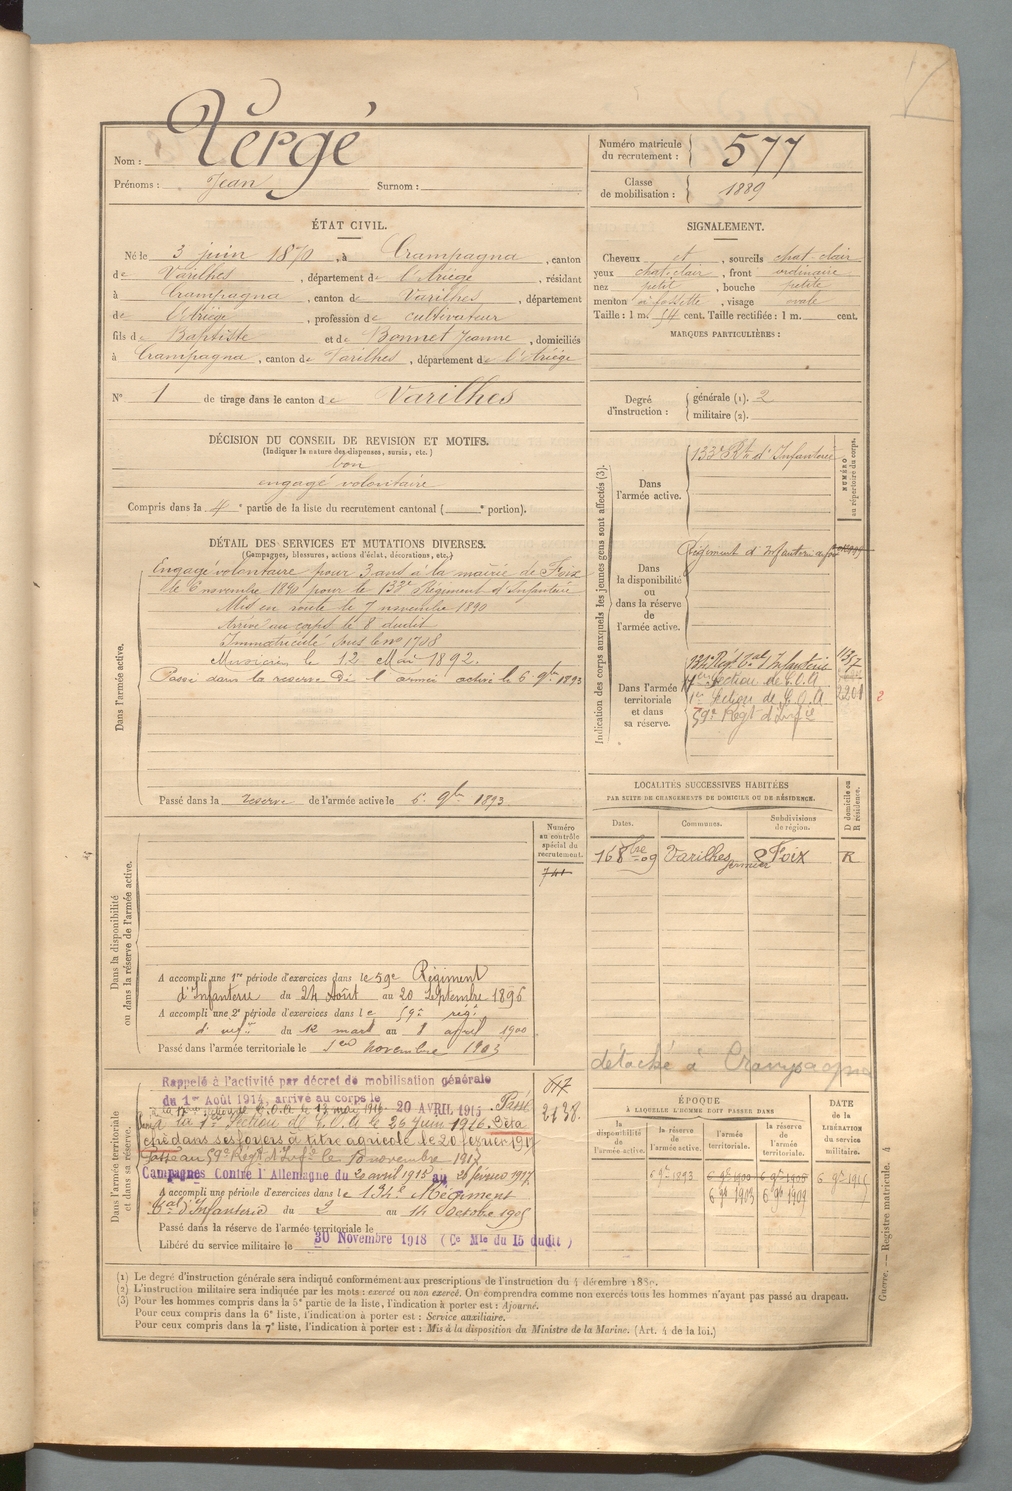 Nom : Vergé
Prénoms : Jean Surnom :
Numéro matricule du recrutement : 577
Classe de mobilisation : 1889
ÉTAT CIVIL.
Né le 3 juin 1870, à Crampagna, canton
de Varilhes, département de l'Ariège, résidant
à Crampagna, canton de Varilhes, département
de l'Ariège, profession de cultivateur
fils de Baptiste et de Bonnet Jeanne, domiciliés
à Crampagna, canton de Varilhes, département de l'Ariège
N° 1 de tirage dans le canton de Varilhes
SIGNALEMENT.
Cheveux et, sourcils chat. clair
yeux chat. clair, front ordinaire
nez petit, bouche petite
menton à fossette, visage ovale
Taille : 1 m. 54 cent. Taille rectifiée : 1 m. cent.
MARQUES PARTICULIÈRES :
Degré d'instruction : générale (1). 2
militaire (2).
DÉCISION DU CONSEIL DE REVISION ET MOTIFS.
(Indiquer la nature des dispenses, sursis, etc.)
bon
engagé volontaire
Compris dans la 4e partie de la liste du recrutement cantonal ( e portion).
DÉTAIL DES SERVICES ET MUTATIONS DIVERSES.
(Campagnes, blessures, actions d'éclat, décorations, etc.)
Dans l'armée active.
Engagé volontaire pour 3 ans à la mairie de Foix
le 6 novembre 1890 pour le 133e Régiment d'Infanterie
Mis en route le 7 novembre 1890
Arrivé au corps le 8 dudit
Immatriculé sous le no 1708
Musicien le 12 Mai 1892.
Passé dans la réserve de l'armée active le 6 9bre 1893
Passé dans la réserve de l'armée active le 6 9bre 1893
Indication des corps auxquels les jeunes gens sont affectés (3).
NUMÉRO au répertoire du corps.
Dans l'armée active.
133e Rt d'Infanterie
Dans la disponibilité ou dans la réserve de l'armée active.
Régiment d'Infanterie
Dans l'armée territoriale et dans sa réserve.
134e Régt Tal d'Infanterie 1137
17e Section de C.O.A
1re Section de C.O.A 2201 2
59e Régt d'Infie
LOCALITÉS SUCCESSIVES HABITÉES
PAR SUITE DE CHANGEMENTS DE DOMICILE OU DE RÉSIDENCE.
D domicile ou R résidence.
Dates. Communes. Subdivisions de région.
16 8bre 09 Varilhes Foix R
détaché à Crampagna
Dans la disponibilité ou dans la réserve de l'armée active.
Numéro au contrôle spécial du recrutement.
741
A accompli une 1re période d'exercices dans le 59e Régiment
d'Infanterie du 24 Août au 20 Septembre 1896
A accompli une 2e période d'exercices dans le 59e rég.
d'infie du 12 mars au 8 avril 1900
Passé dans l'armée territoriale le 1er novembre 1903
Dans l'armée territoriale et dans sa réserve.
Rappelé à l'activité par décret de mobilisation générale
du 1er Août 1914, arrivé au corps le 20 AVRIL 1915. Passé
à la 1re Section de C.O.A le 26 juin 1916. Déta
ché dans ses foyers à titre agricole le 20 février 1917
Passé au 59e Régt d'Infie le 10 novembre 1917
Campagnes Contre l'Allemagne du 20 avril 1915 au 20 février 1917
A accompli une période d'exercices dans le 134e Régiment
Tal d'Infanterie du 2 au 14 Octobre 1905
Passé dans la réserve de l'armée territoriale le
Libéré du service militaire le 30 Novembre 1918 (Ce Mle du 15 dudit)
2138.
ÉPOQUE
À LAQUELLE L'HOMME DOIT PASSER DANS
la disponibilité de l'armée active. la réserve de l'armée active. l'armée territoriale. la réserve de l'armée territoriale.
DATE de la LIBÉRATION du service militaire.
6 9bre 1893 6 9e 1900 6 9e 1906 6 9e 1915
6 9bre 1903 6 9bre 1909
(1) Le degré d'instruction générale sera indiqué conformément aux prescriptions de l'instruction du 4 décembre 1889.
(2) L'instruction militaire sera indiquée par les mots : exercé ou non exercé. On comprendra comme non exercés tous les hommes n'ayant pas passé au drapeau.
(3) Pour les hommes compris dans la 5e partie de la liste, l'indication à porter est : Ajourné.
Pour ceux compris dans la 6e liste, l'indication à porter est : Service auxiliaire.
Pour ceux compris dans la 7e liste, l'indication à porter est : Mis à la disposition du Ministre de la Marine. (Art. 4 de la loi.)
Guerre. — Registre matricule. 4